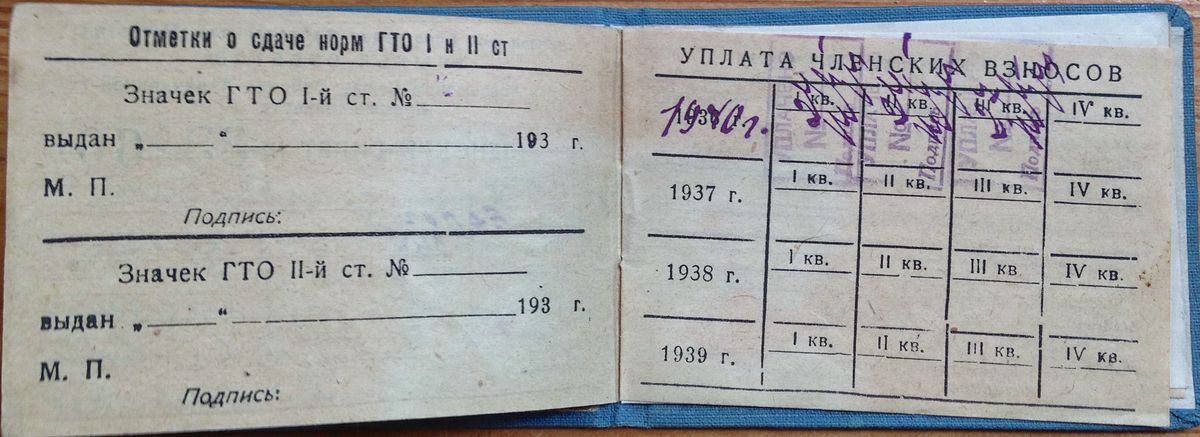 Отметки о сдаче норм ГТО I и II ст
Значек ГТО I-й ст. №
выдан „ “ 193 г.
М. П.
Подпись:
Значек ГТО II-й ст. №
выдан „ “ 193 г.
М. П.
Подпись:
УПЛАТА ЧЛЕНСКИХ ВЗНОСОВ
1940г. I кв. II кв. III кв. IV кв.
1937 г. I кв. II кв. III кв. IV кв.
1938 г. I кв. II кв. III кв. IV кв.
1939 г. I кв. II кв. III кв. IV кв.